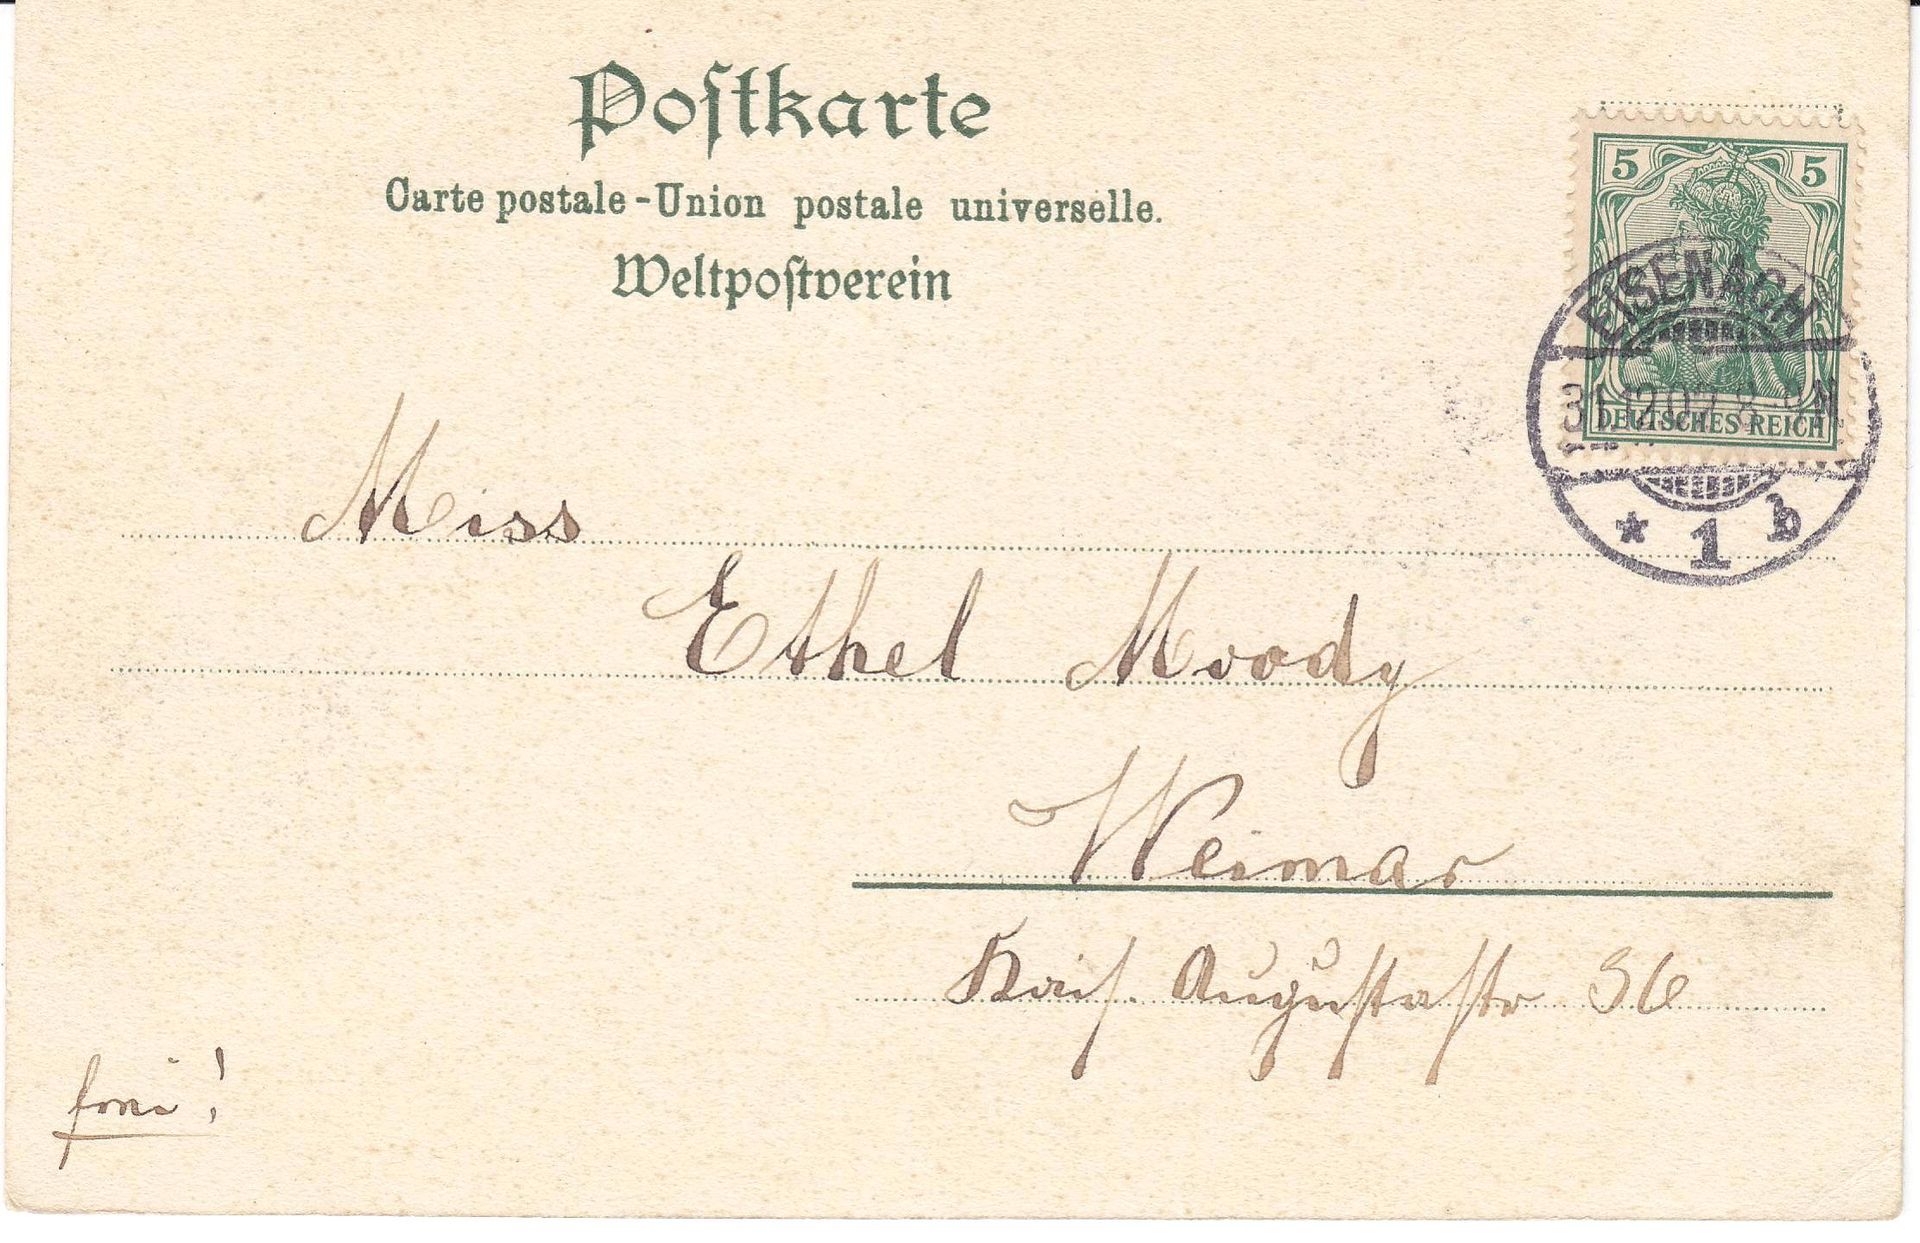 Postkarte
Carte postale-Union postale universelle.
Weltpostverein
5 5
DEUTSCHES REICH
EISENACH
31.12.02. 8-9N
* 1 b
Miss
Ethel Moody
Weimar
Kais. Augustastr 36
frei!